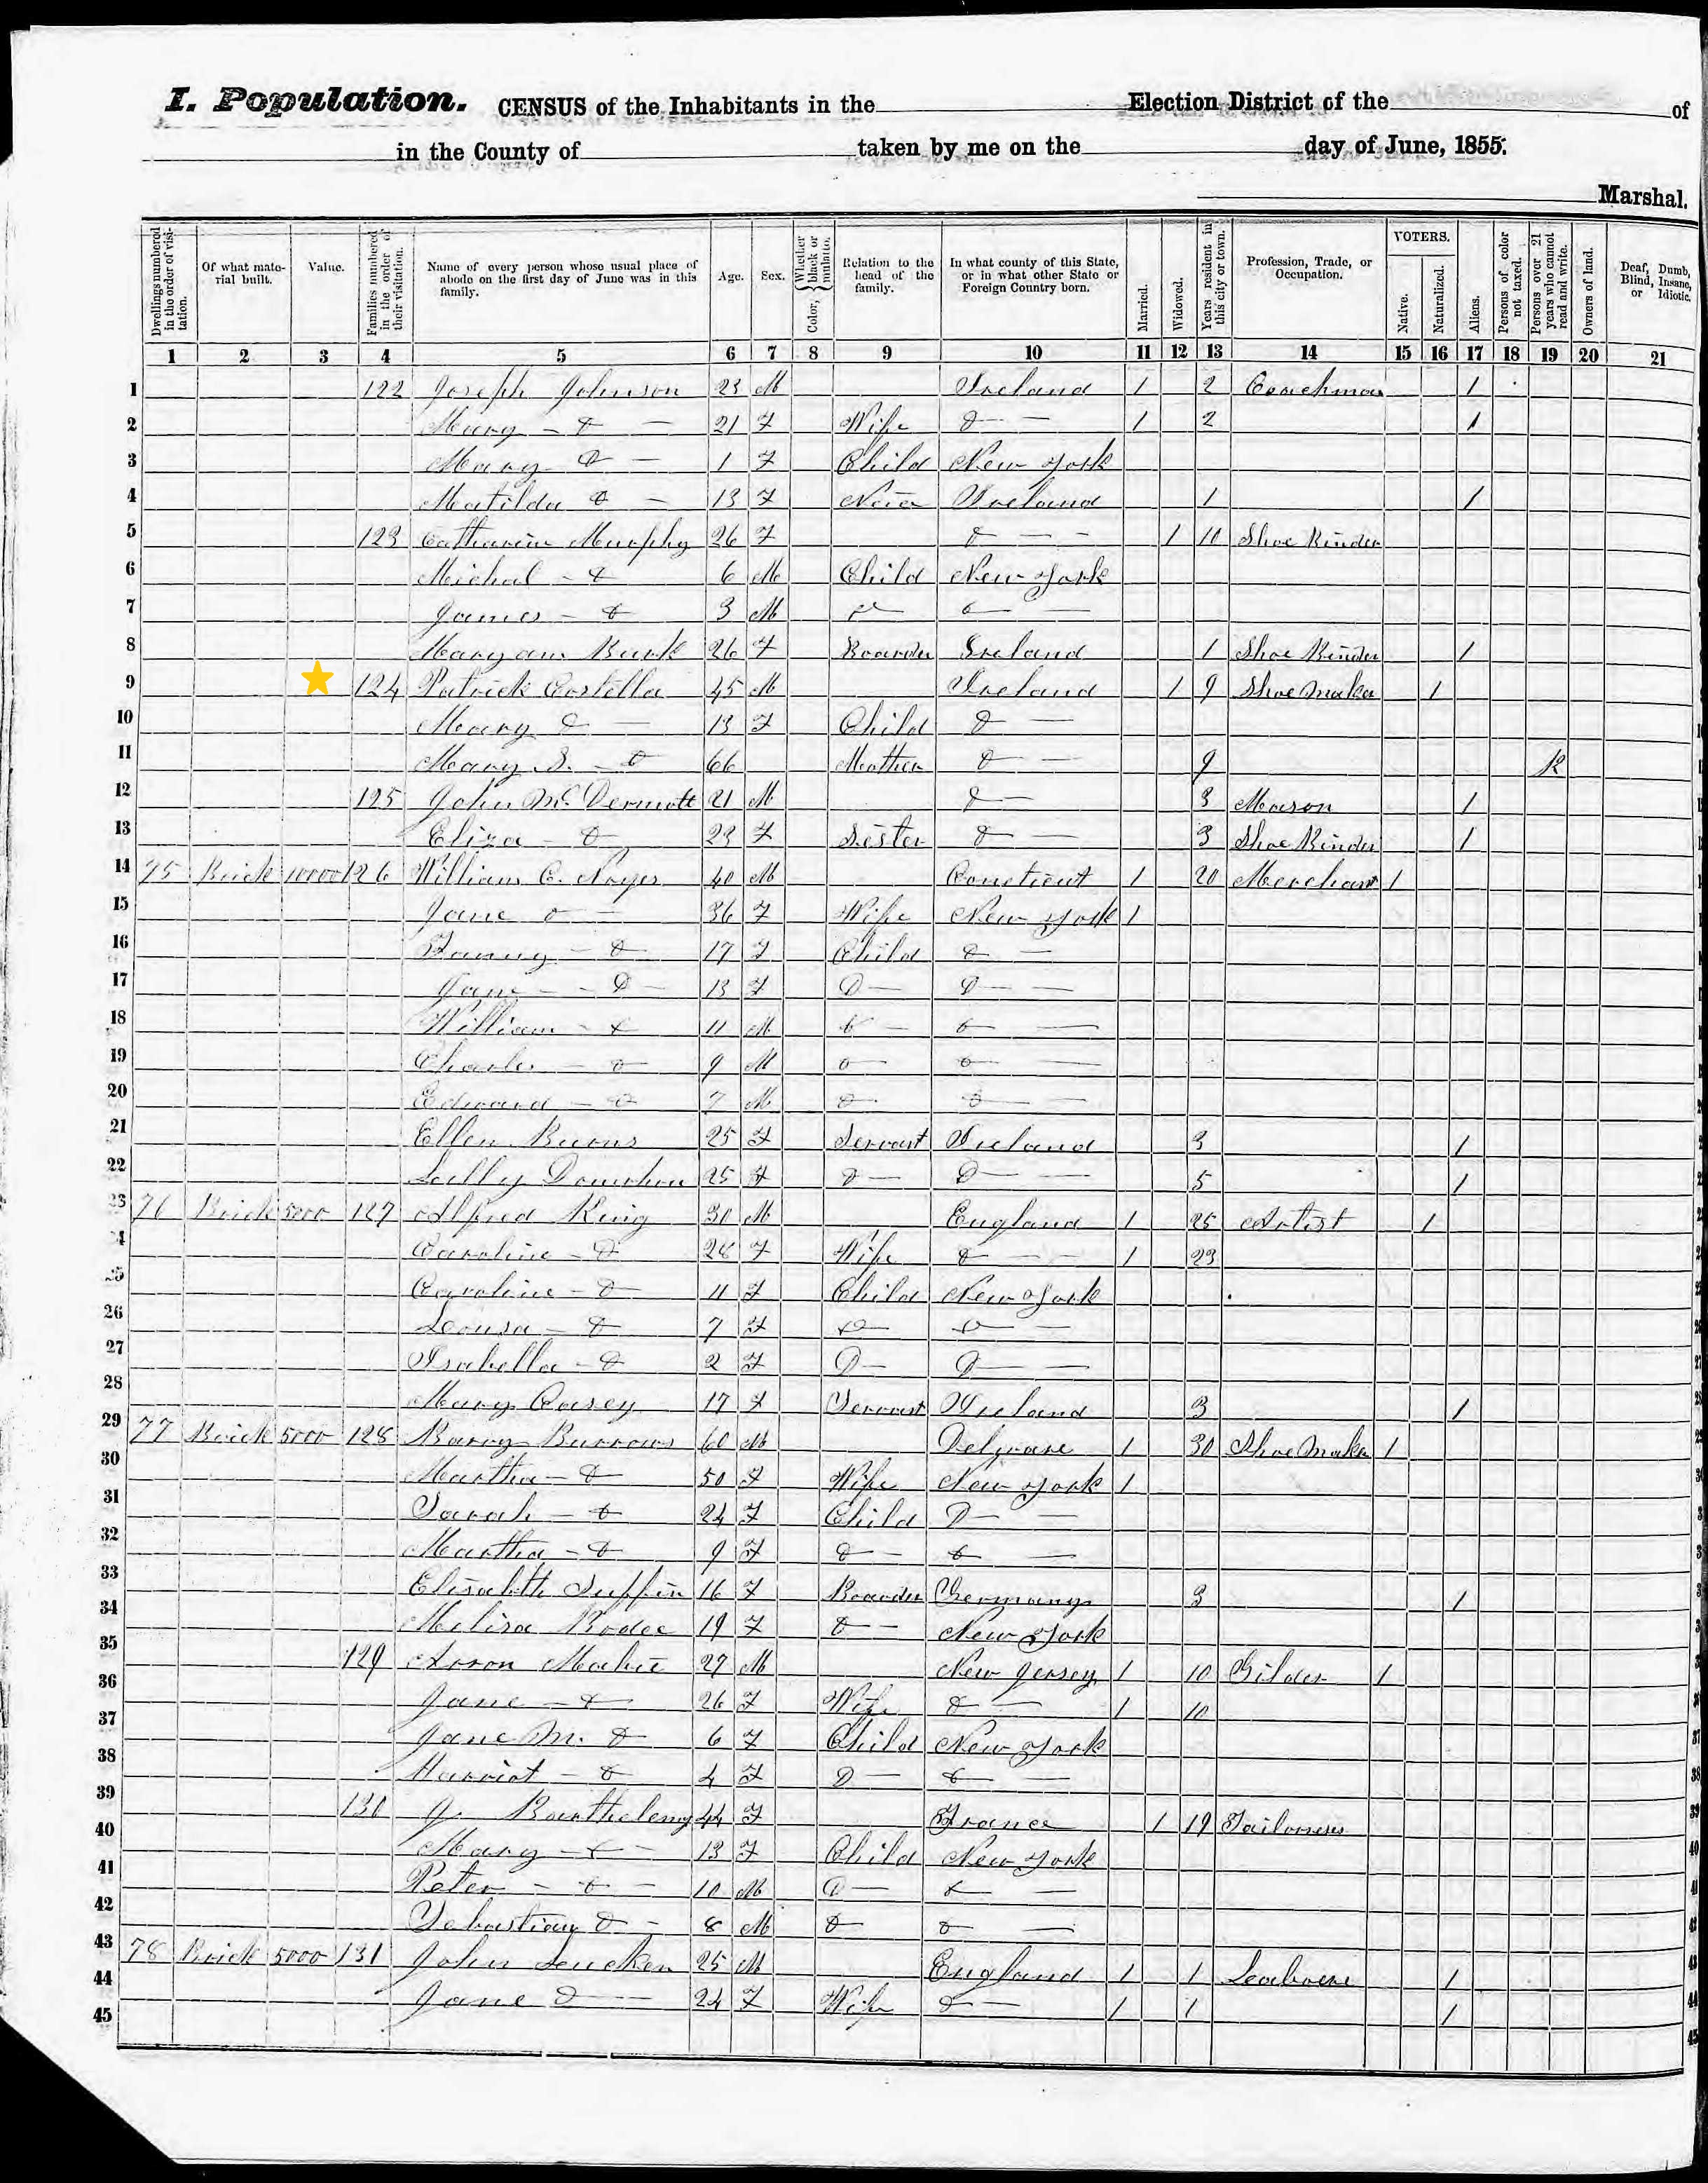 I. Population. CENSUS of the Inhabitants in the Election District of the of
in the County of taken by me on the day of June, 1855.
Marshal.
Dwellings numbered in the order of visitation. Of what material built. Value. Families numbered in the order of their visitation. Name of every person whose usual place of abode on the first day of June was in this family. Age. Sex. Color, { Whether black or mulatto. Relation to the head of the family. In what county of this State, or in what other State or Foreign Country born. Married. Widowed. Years resident in this city or town. Profession, Trade, or Occupation. VOTERS. Native. Naturalized. Aliens. Persons of color not taxed. Persons over 21 years who cannot read and write. Owners of land. Deaf, Dumb, Blind, Insane, or Idiotic.
1 2 3 4 5 6 7 8 9 10 11 12 13 14 15 16 17 18 19 20 21
1 122 Joseph Johnson 23 M Ireland 1 2 Coachman 1
2 Mary - Do - 21 F Wife Do - 1 2 1
3 Mary Do - 1 F Child New York
4 Matilda Do - 13 F Ireland 1 1
5 123 Catharin Murphy 26 F Do - - 1 10 Shoe Binder
6 Michal - Do 6 M Child New York
7 James - Do 3 M Do - Do -
8 Maryann Burk 26 F Boarder Ireland 1 Shoe Binder 1
9 124 Patrick Costella 45 M Ireland 1 9 Shoe Maker 1
10 Mary Do - 13 F Child Do -
11 Mary S. - Do 66 Mother Do - 9 R
12 125 John McDermott 21 M Do - 3 Mason 1
13 Eliza - Do 23 F Sister Do - 3 Shoe Binder 1
14 75 Brick 10000 126 William C. Noyes 40 M Coneticut 1 20 Merchant 1
15 Jane Do - 36 F Wife New York 1
16 Fanny - Do 17 F Child Do -
17 Jane - - Do - 13 F Do - Do -
18 William - Do 11 M Do - Do -
19 Charles - Do 9 M Do - Do -
20 Edward - Do 7 M Do - Do -
21 Ellen Burns 25 F Servant Ireland 3 1
22 25 F Do - Do - 5 1
23 76 Brick 5000 127 Alfred King 30 M England 1 25 Artist 1
24 Caroline - Do 28 F Wife Do - - 1 23
25 Caroline - Do 11 F Child New York
26 Lousa - Do 7 F Do - Do -
27 Isabella - Do 2 F Do - Do -
28 Mary Casey 17 F Servant Ireland 3 1
29 77 Brick 5000 128 Barry Burrows 60 M Delware 1 30 Shoe Maker 1
30 Martha - Do 50 F Wife New York 1
31 Sarah - Do 24 F Child Do -
32 Martha - Do 9 F Do - Do -
33 Elisabeth 16 F Boarder Germany 3 1
34 Melisa 19 F Do - New York
35 129 Aron 27 M New Jersey 1 10 Gilder 1
36 Jane - Do 26 F Wife Do - 1 10
37 Jane M. Do 6 F Child New York
38 Harriot - Do 4 F Do - Do -
39 130 J. Barthelemy 44 F France 1 19 Tailoress
40 Mary - Do - 13 F Child New York
41 Peter - Do - 10 M Do - Do -
42 Sebastian Do - 8 M Do Do -
43 78 Brick 5000 131 John 25 M England 1 1 1
44 Jane Do - 24 F Wife Do - 1 1 1
45